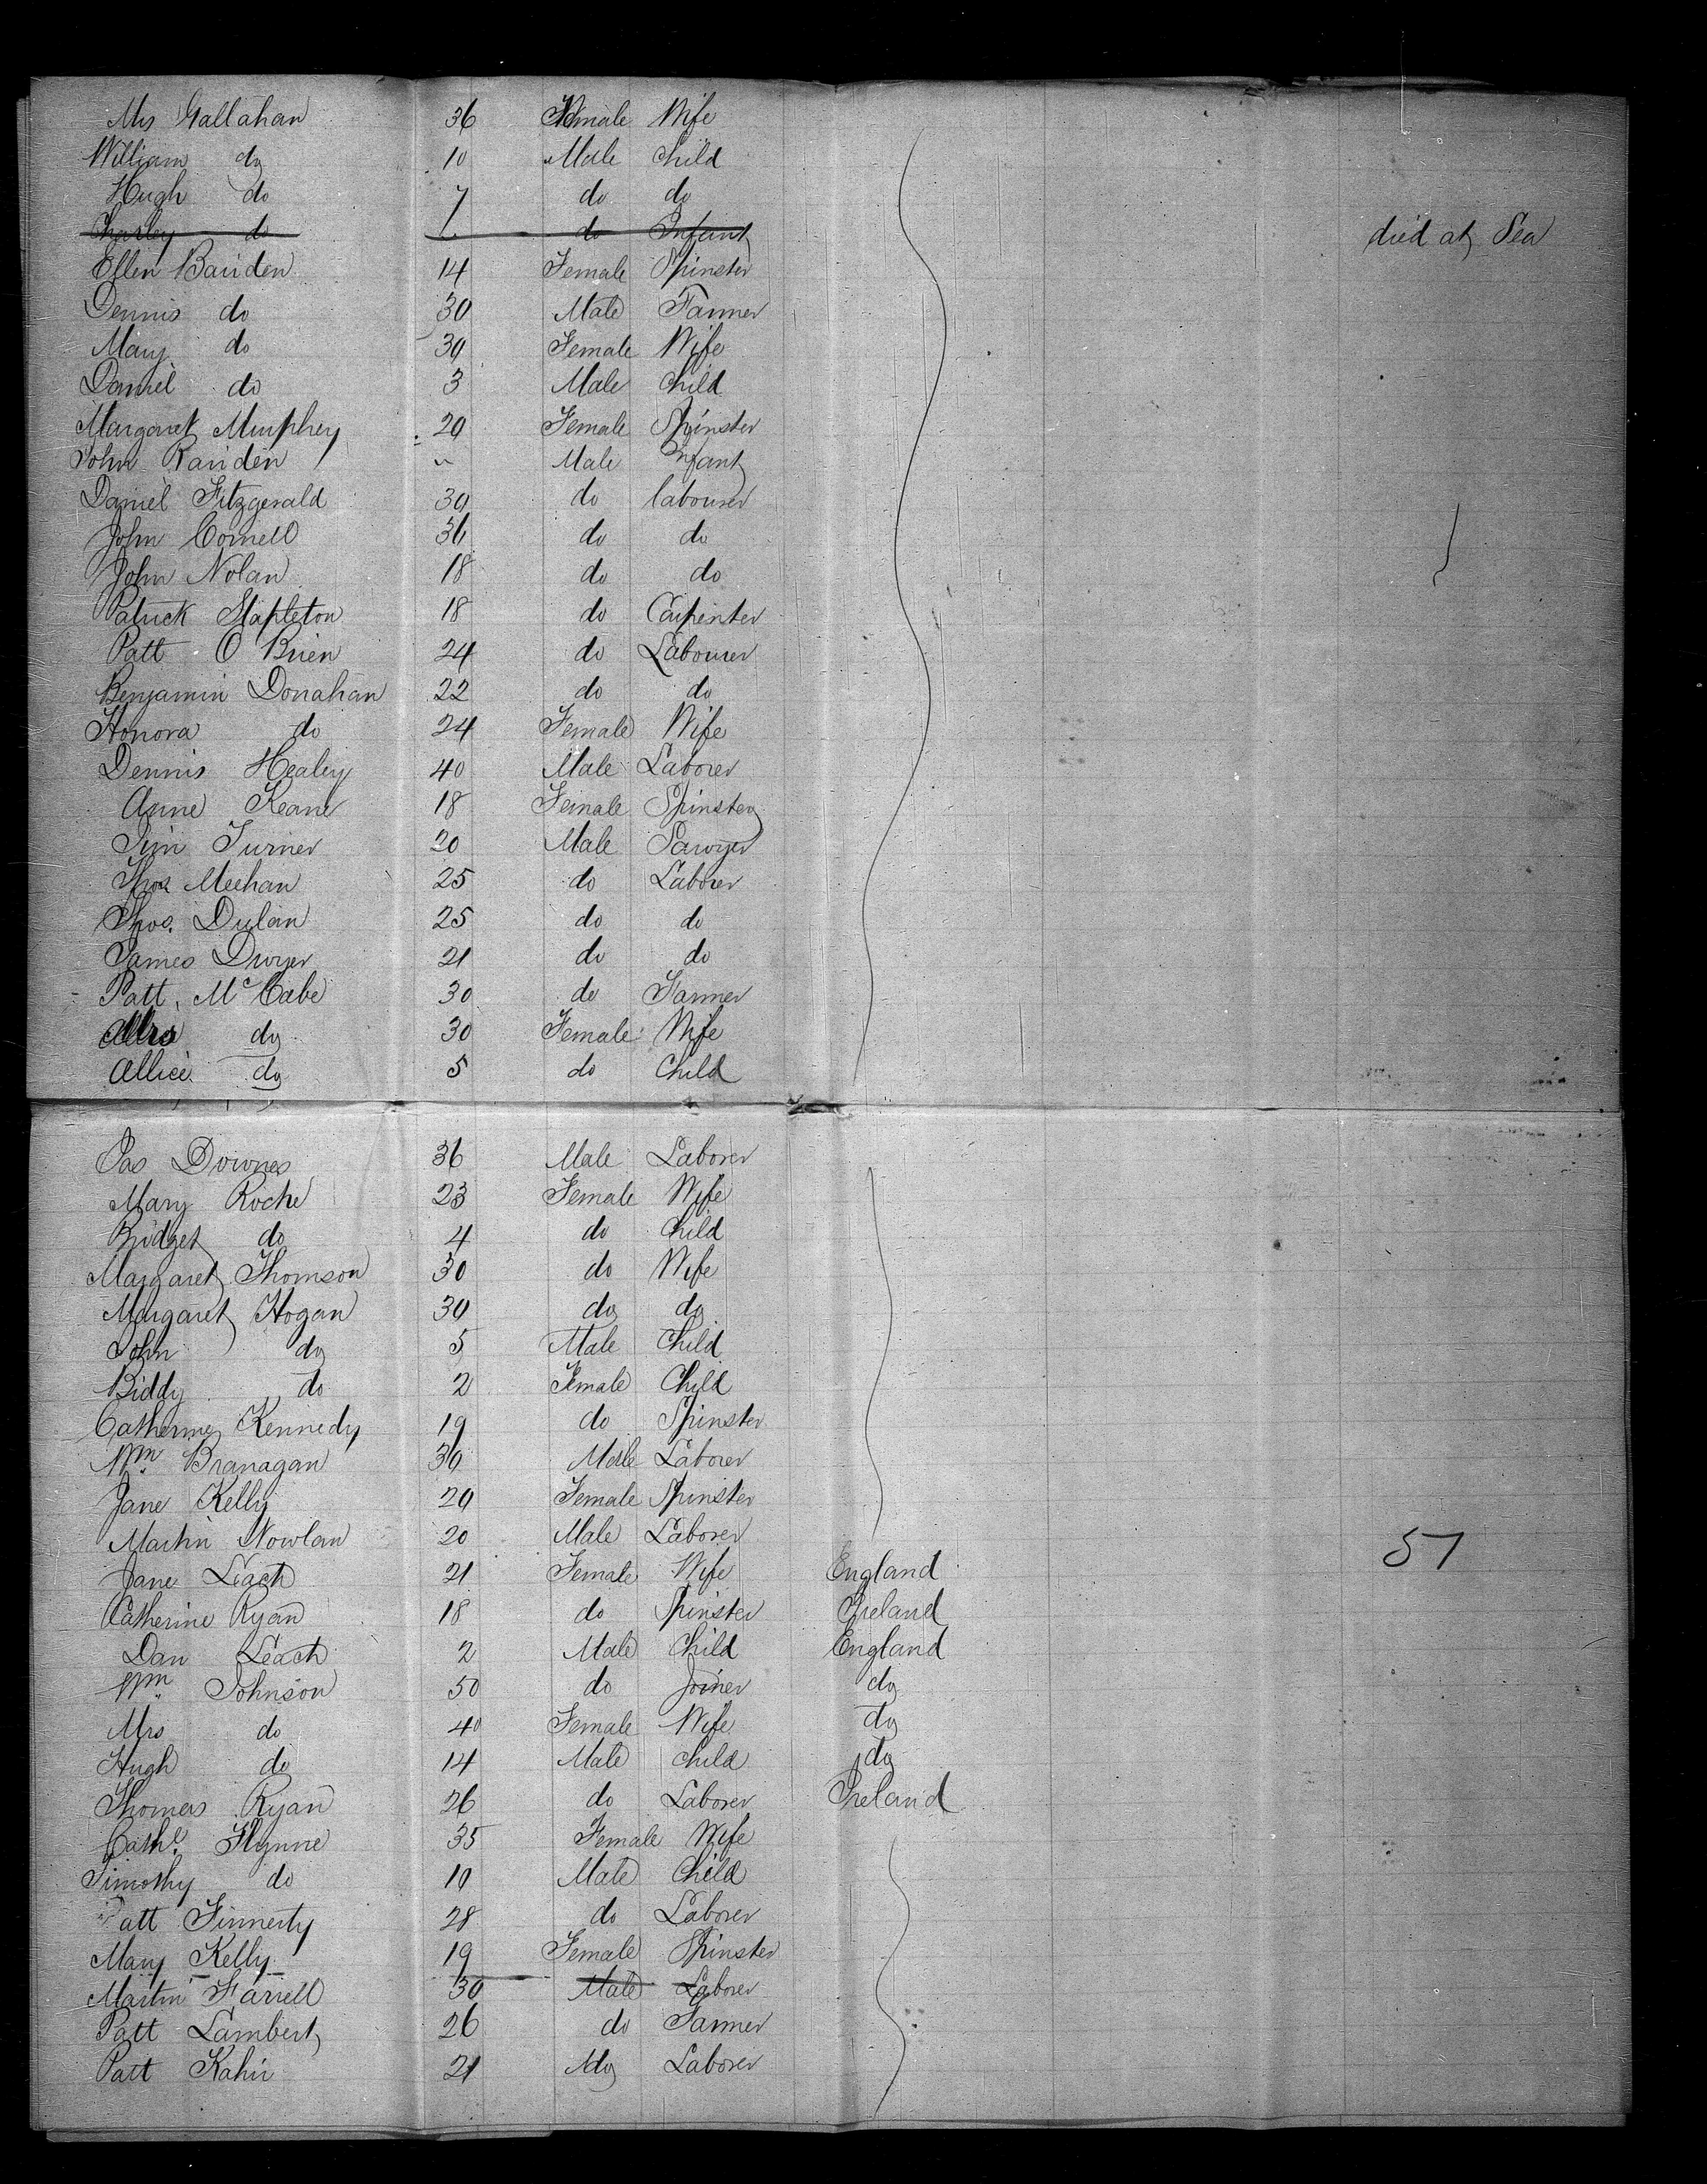 Mrs Gallahan 36 Female Wife
William do 10 Male Child
Hugh do 7 do do
Charley do 1 do Infant died at Sea
Ellen Bariden 14 Female Spinster
Dennis do 30 Male Farmer
Mary do 30 Female Wife
Daniel do 3 Male Child
Margaret Murphey 20 Female Spinster
John Rariden Male Infant
Daniel Fitzgerald 30 do labourer
John Cornell 36 do do
John Nolan 18 do do
Patrick Stapleton 18 do Carpenter
Patt O Brien 24 do Labourer
Benjamin Donahan 22 do do
Honora do 24 Female Wife
Dennis Healey 40 Male Laborer
Anne Keane 18 Female Spinster
Tim Turner 20 Male Sawyer
Thos Meehan 25 do Laborer
Thos. Dulan 25 do do
James Dwyer 21 do do
Patt. Mc Cabe 30 do Farmer
Mrs do 30 Female Wife
Allice do 5 do Child
Jas Downes 36 Male Laborer
Mary Roche 23 Female Wife
Bridget do 4 do Child
Margaret Thomson 30 do Wife
Margaret Hogan 30 do do
John do 5 Male Child
Biddy do 2 Female Child
Catherine Kennedy 19 do Spinster
Wm Branagan 30 Male Laborer
Jane Kelly 20 Female Spinster
Martin Nowlan 20 Male Laborer 57
Jane Leach 21 Female Wife England
Catherine Ryan 18 do Spinster Ireland
Dan Leach 2 Male Child England
Wm Johnson 50 do Joiner do
Mrs do 40 Female Wife do
Hugh do 14 Male Child do
Thomas Ryan 26 do Laborer Ireland
Cathe. Flynne 35 Female Wife
Timothy do 10 Male Child
Patt Finnerty 28 do Laborer
Mary Kelly 19 Female Spinster
Martin Farrell 30 Male Laborer
Patt Lambert 26 do Farmer
Patt Kahir 21 do Laborer